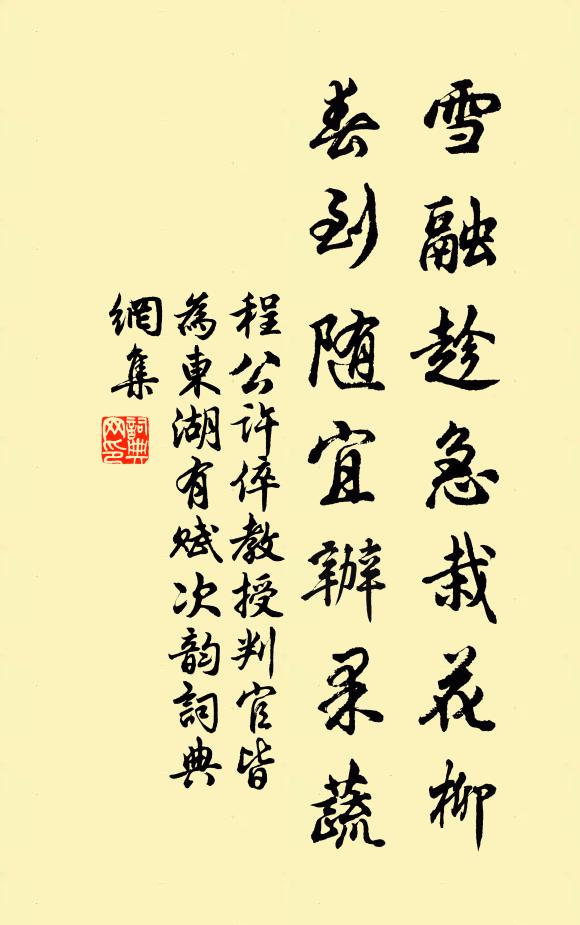 雪融趁急栽花柳
春到随宜辦果蔬
程公许倅教授判官皆
為東湖有赋次韵詞典
網集
詞典網印